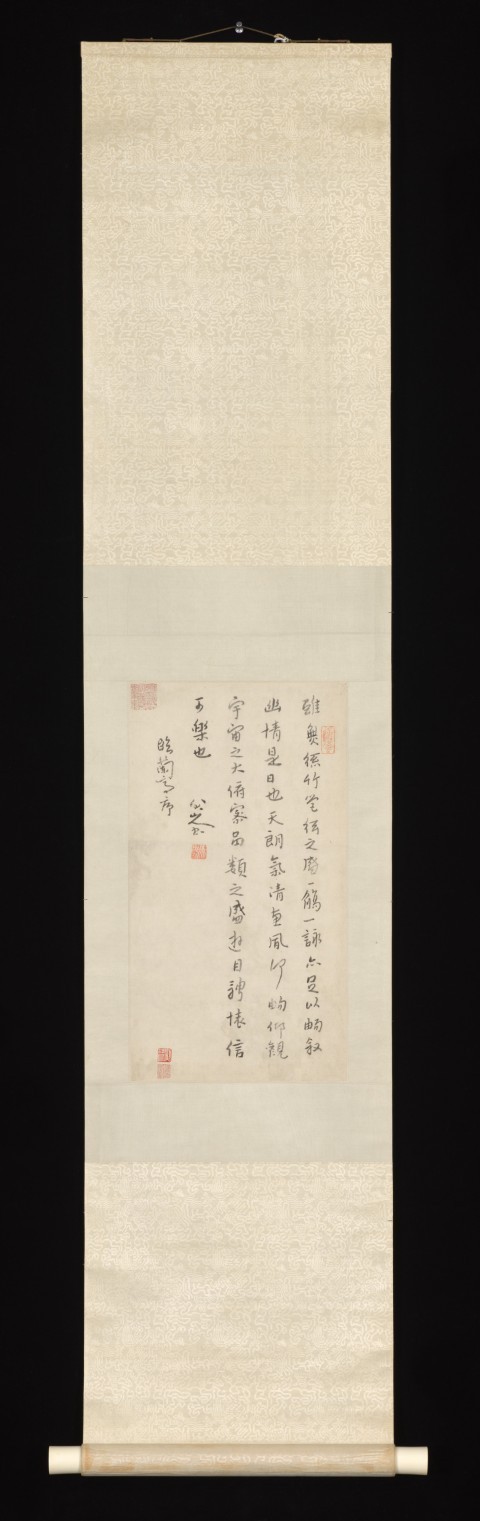 雖無絲竹筦絃之盛一觴一詠亦足以暢敘
幽情是日也天朗氣清惠風和暢仰觀
宇宙之大俯察品類之盛遊目騁懷信
可樂也 八大山人
臨蘭亭序